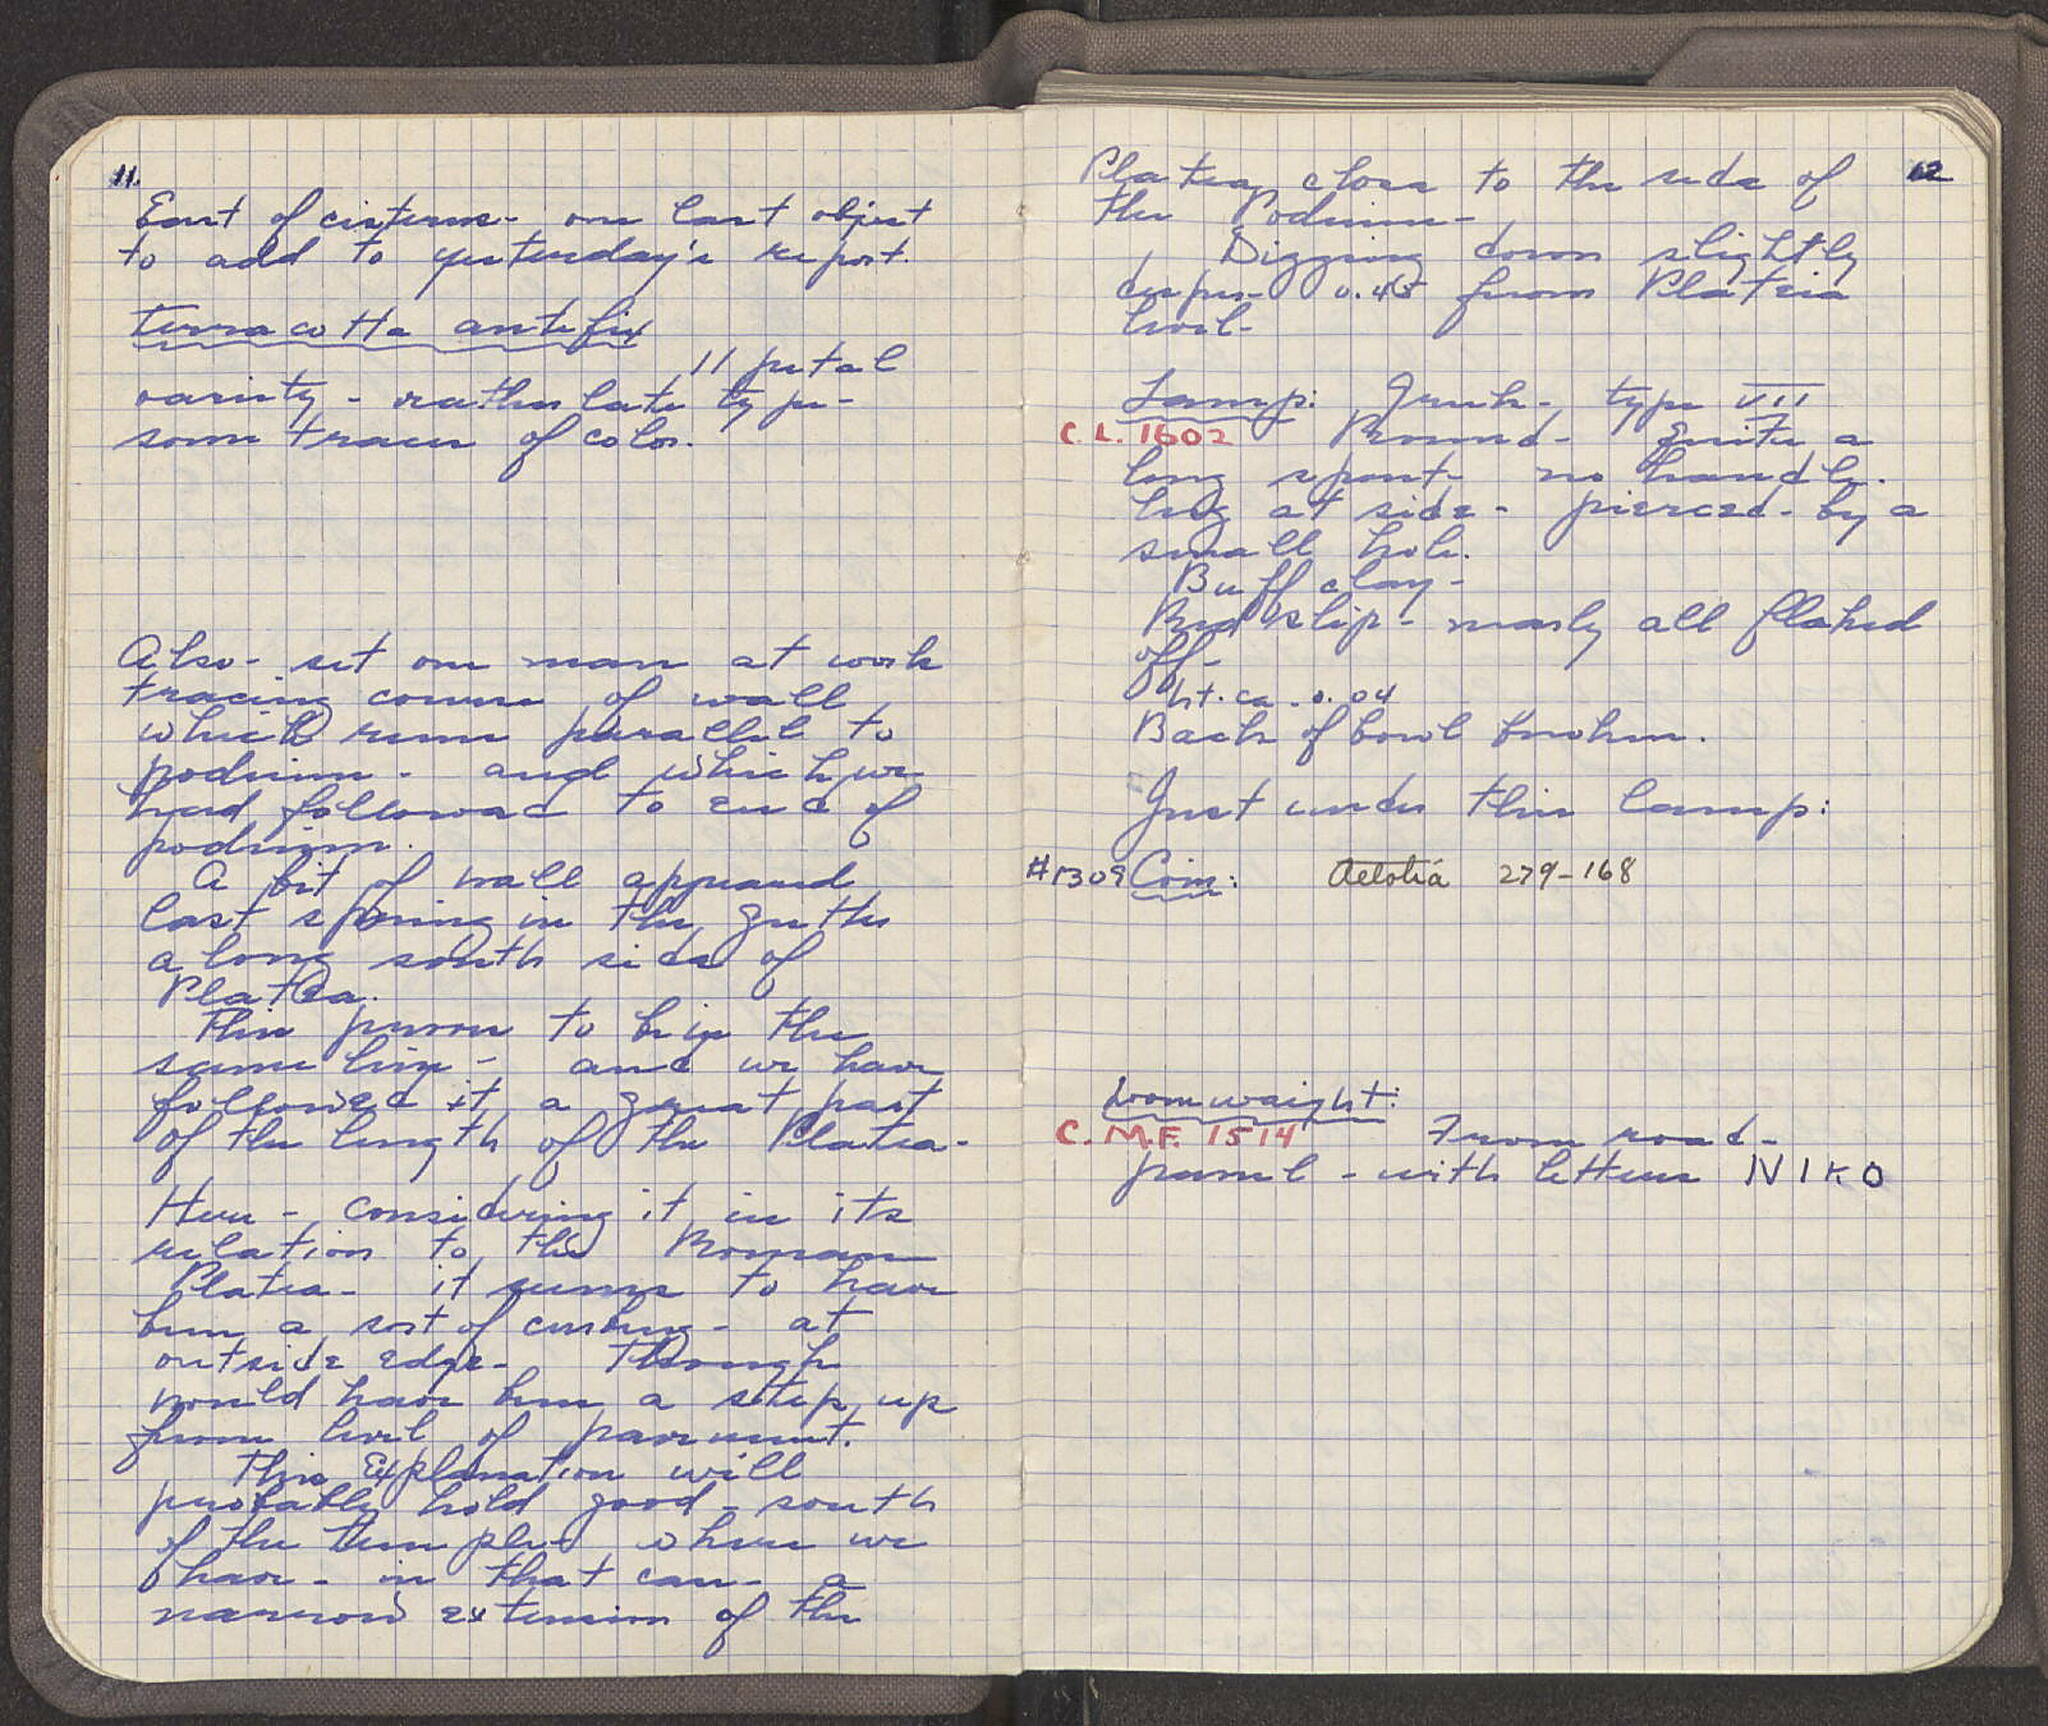 11.
East of cisterns - one last object
to add to yesterday's report.
terracotta antefix
11 petal
variety - rather late type -
some traces of color.
Also - set one man at work
tracing course of wall
which runs parallel to
podium - and which we
had followed to end of
podium.
A bit of wall appeared
last spring in the gutter
along south side of
Platea.
This proves to be in the
same line - and we have
followed it a great part
of the length of the Platea -
Here - considering it in its
relation to the Roman
Platea - it seems to have
been a sort of curbing - at
outside edge - Though
would have been a step up
from level of pavement.
This Explanation will
probably hold good - south
of the temple - where we
have - in that case - a
narrow extension of the
12
Platea close to the side of
the Podium -
Digging down slightly
deeper - 0.45 from Plateia
level -
Lamp: Greek - type VII
C.L. 1602 Round - Quite a
long spout - no handle.
lug at side - pierced - by a
small hole.
Buff clay -
Red slip - nearly all flaked
off -
ht. ca. 0.04
Back of bowl broken.
Just under this lamp:
#1309 Coin: Aetolia 279-168
Loom weight:
C.M.F. 1514 From road -
panel - with letters NIKO